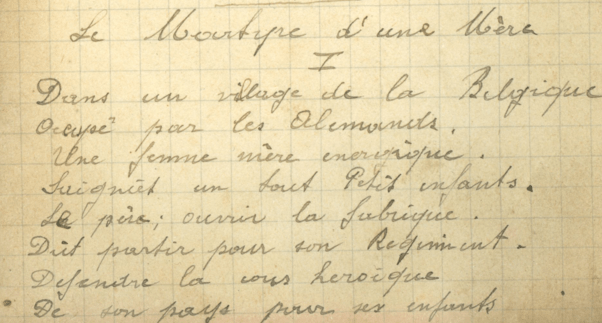 Le Martyre d'une Mère
I
Dans un village de la Belgique
Ocupé par les Alemands.
Une femme mère energique.
Soigniet un tout Petit enfants.
Le père; ouvrir la fabrique.
Dût partir pour son Regiment.
Defendre la cous heroïque
De son pays pour ses enfants